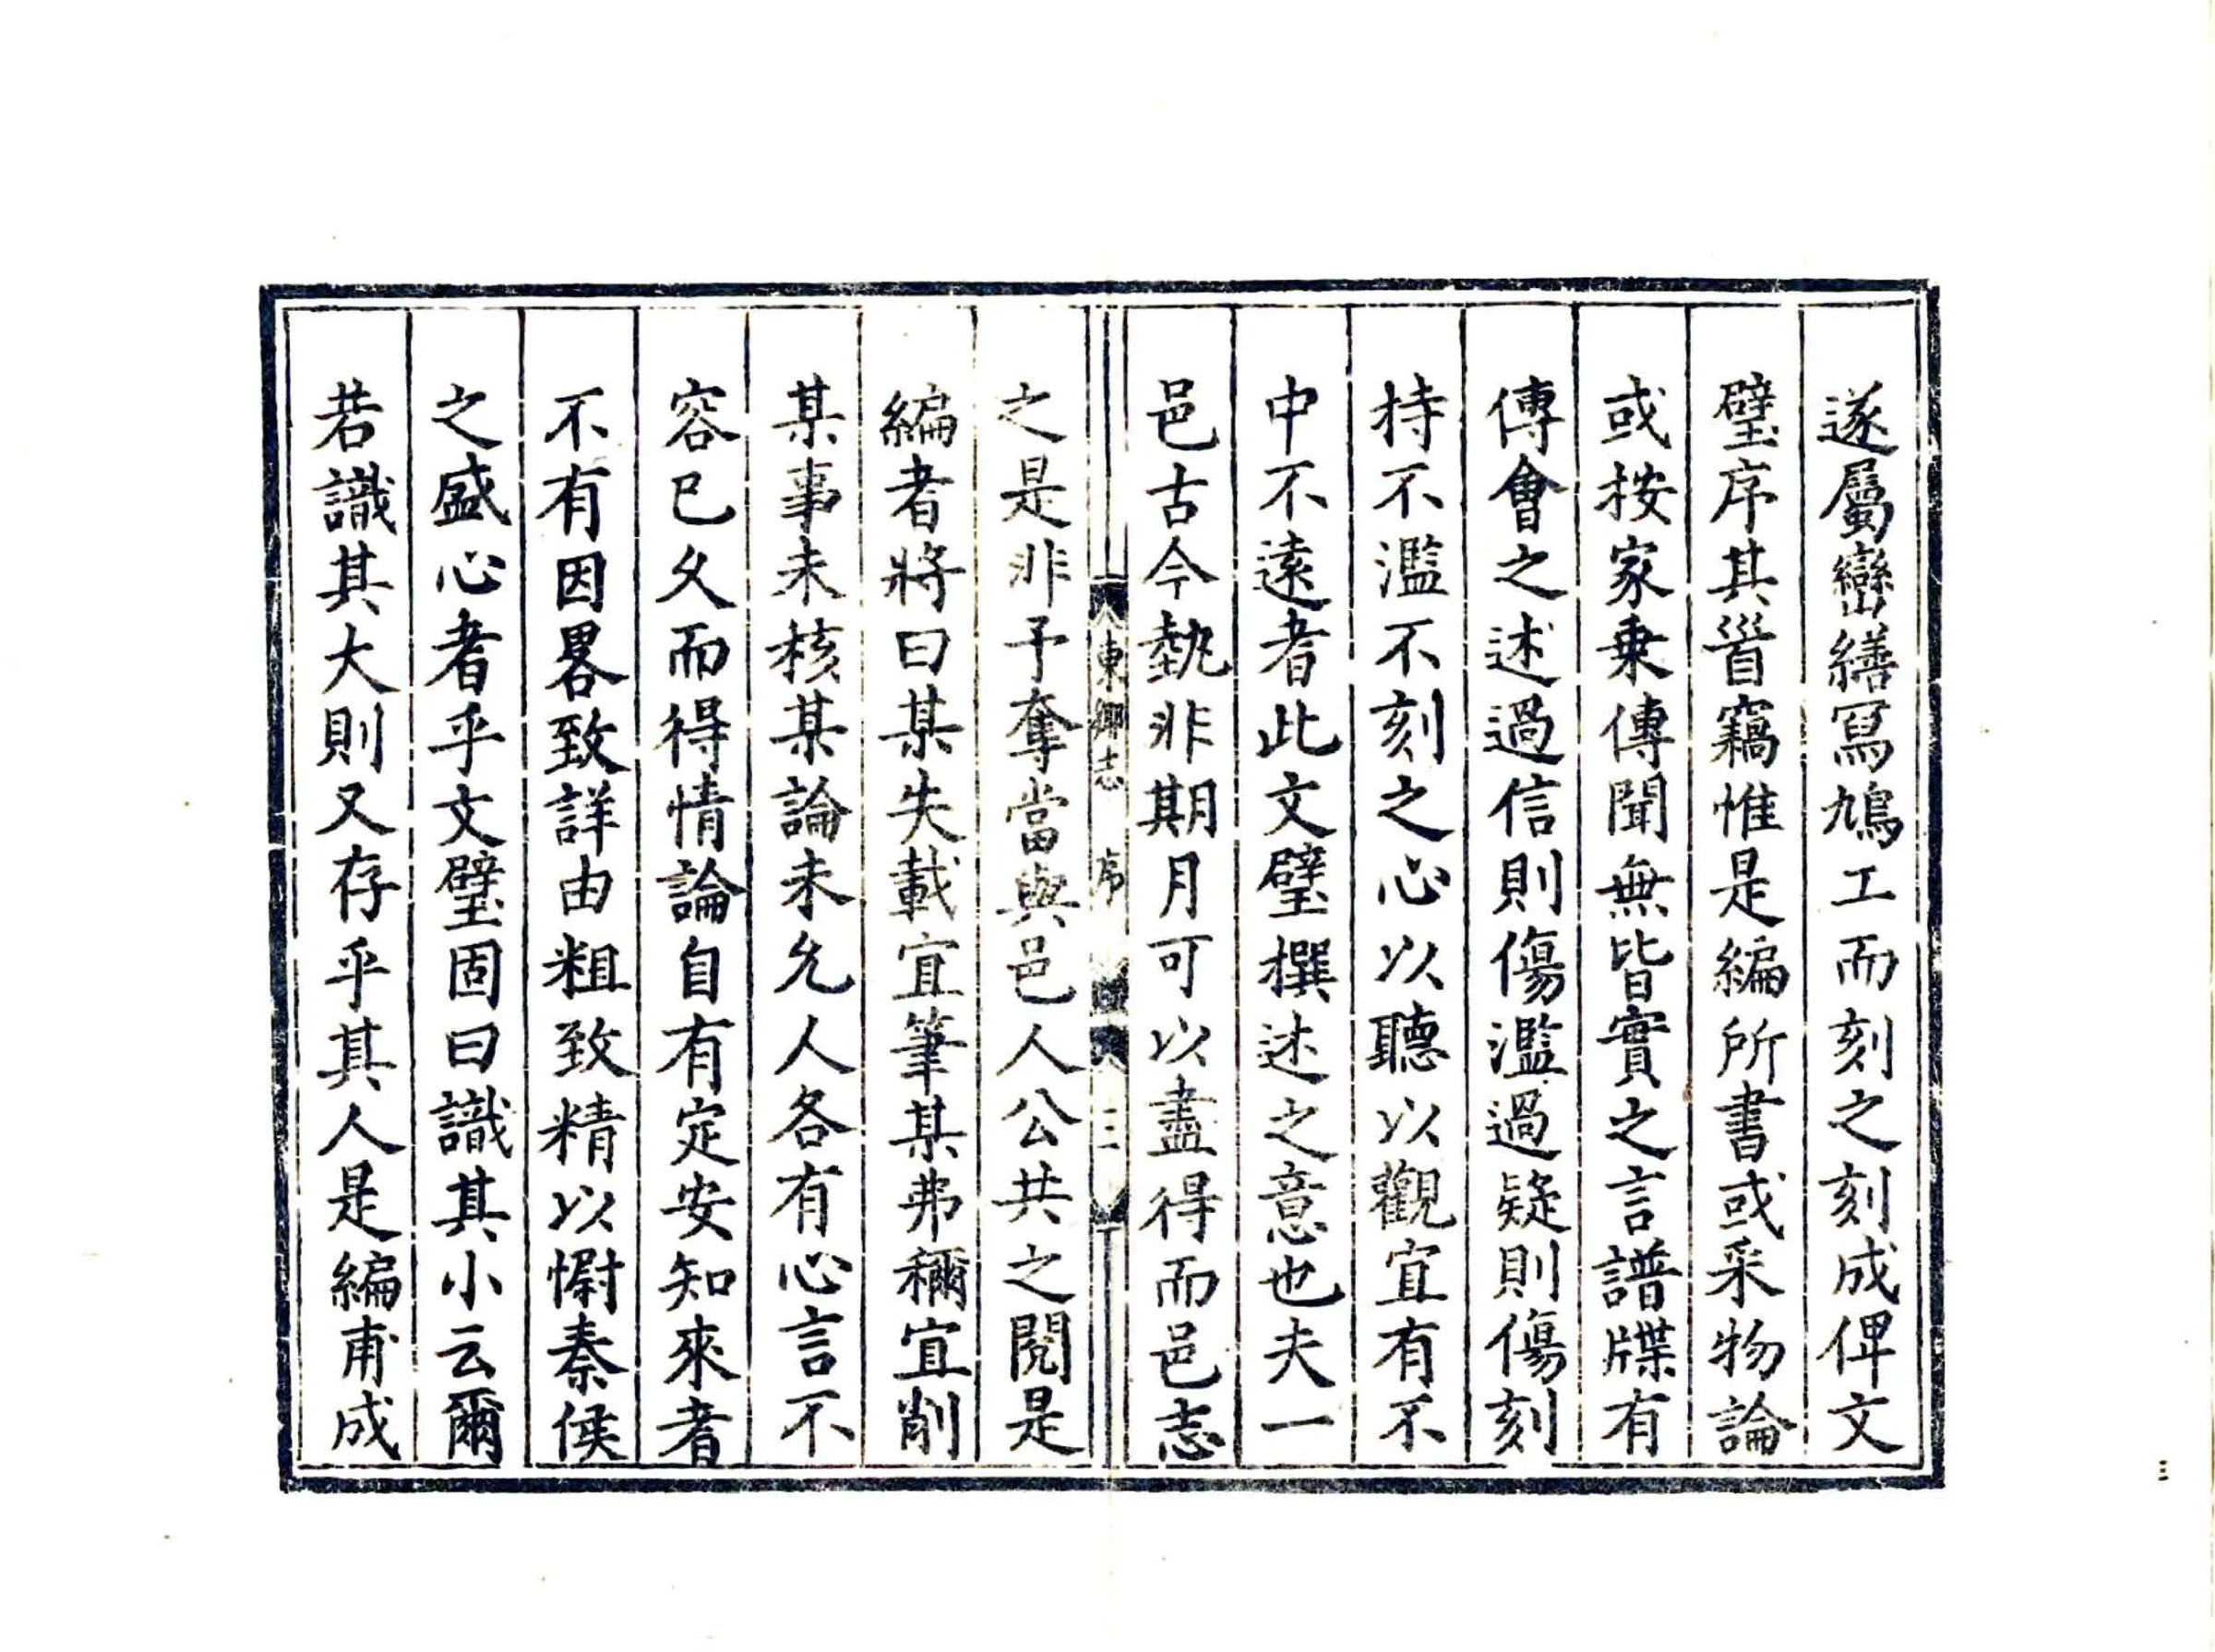 遂屬巒繕冩鳩工而刻之刻成俾文
璧序其首竊惟是編所書或采物論
或按家乗傳聞無皆實之言譜牒有
傅會之述過信則傷濫過疑則傷刻
持不濫不刻之心以聽以觀宜有不
中不逺者此文璧撰述之意也夫一
邑古今埶非期月可以盡得而邑志
東鄉志 序 三
之是非予奪當與邑人公共之閱是
編者將曰某失載宜筆某弗稱宜削
某事未核某論未允人各有心言不
容已久而得情論自有定安知來者
不有因畧致詳由粗致精以慰秦侯
之盛心者乎文璧固曰識其小云爾
若識其大則又存乎其人是編甫成
三